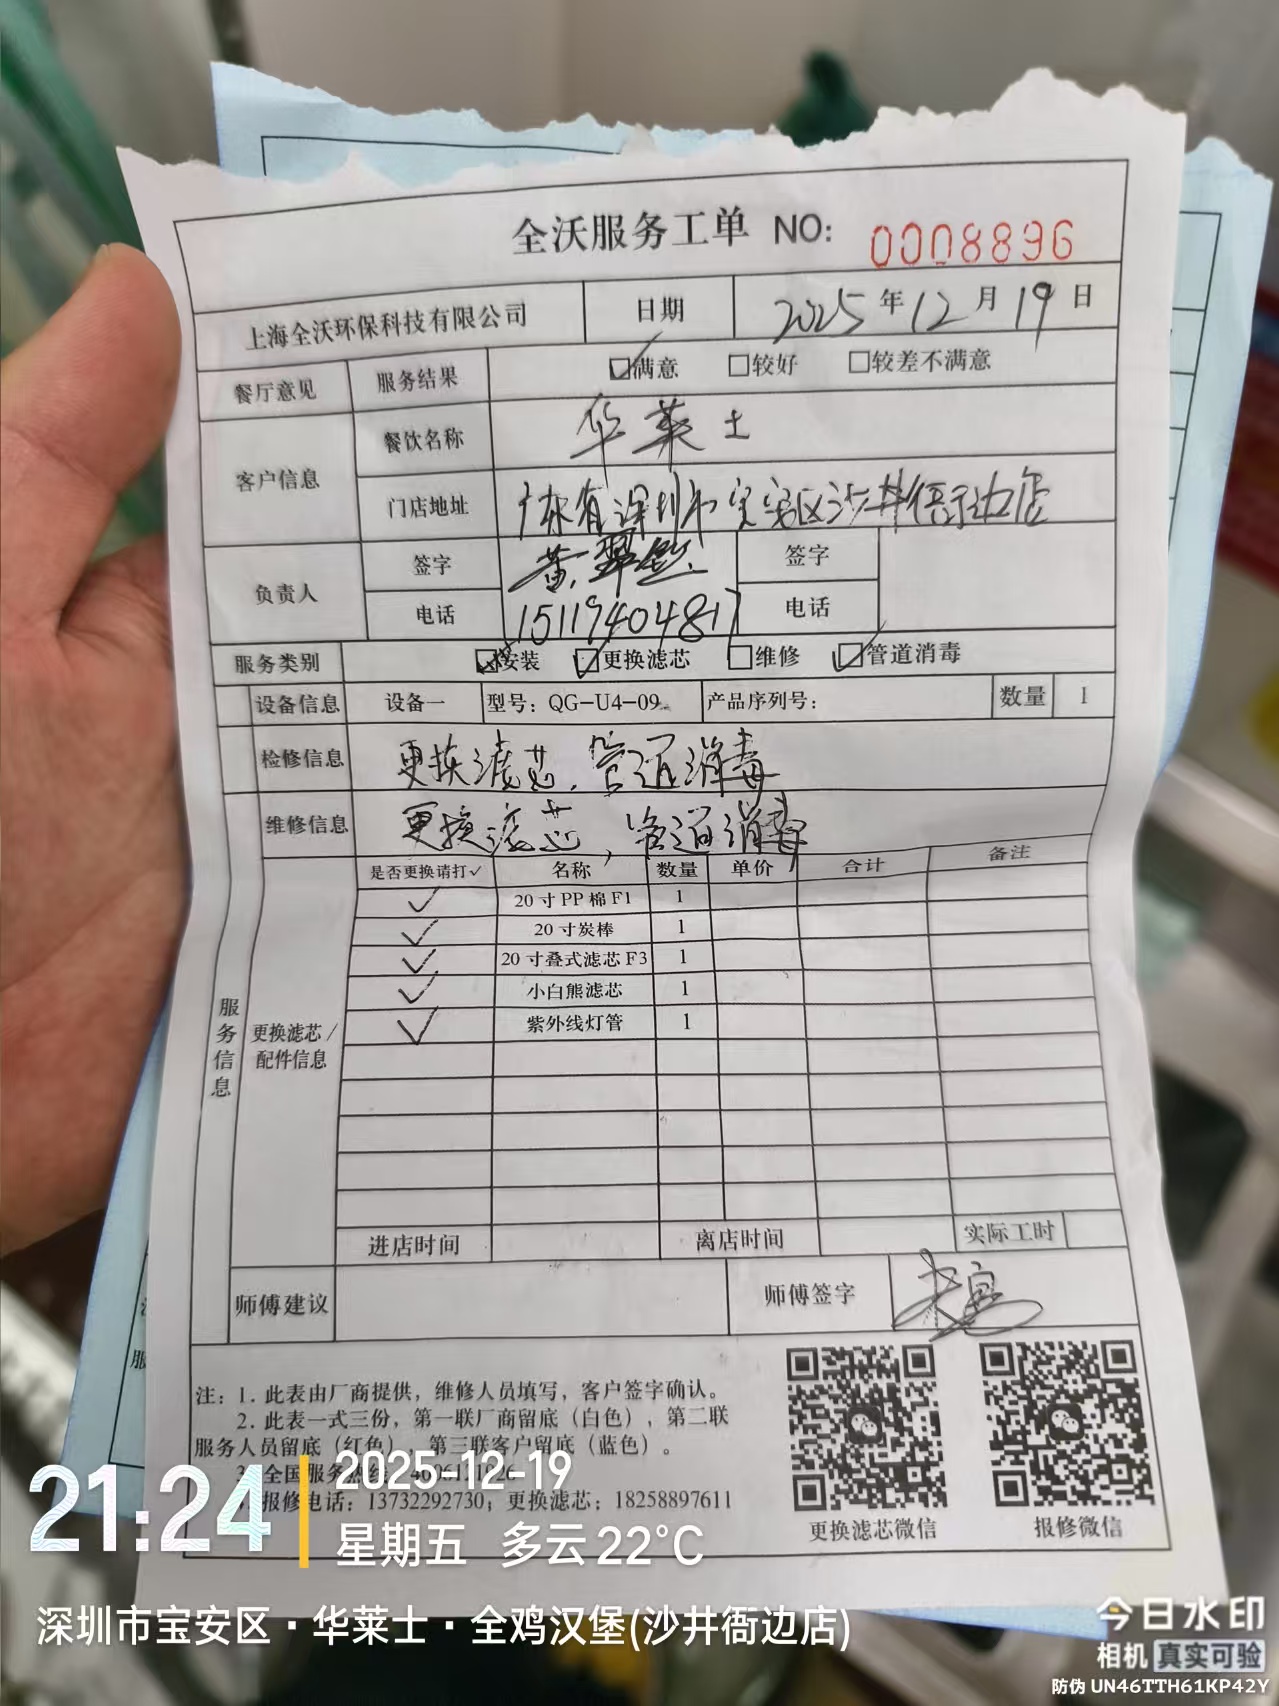 全沃服务工单 NO: 0008896
上海全沃环保科技有限公司 日期 2025年12月19日
餐厅意见 服务结果 ☑满意 □较好 □较差不满意
客户信息 餐饮名称 华莱士
门店地址 广东省深圳市宝安区沙井衙边店
负责人 签字 黄 签字
电话 15119404817 电话
服务类别 ☑安装 ☑更换滤芯 □维修 ☑管道消毒
设备信息 设备一 型号：QG-U4-09 产品序列号： 数量 1
检修信息 更换滤芯，管道消毒
维修信息 更换滤芯，管道消毒
服务信息
更换滤芯/配件信息
是否更换请打✓ 名称 数量 单价 合计 备注
✓ 20寸PP棉F1 1
✓ 20寸炭棒 1
✓ 20寸叠式滤芯F3 1
✓ 小白熊滤芯 1
✓ 紫外线灯管 1
进店时间 离店时间 实际工时
师傅建议 师傅签字
注：1. 此表由厂商提供，维修人员填写，客户签字确认。
2. 此表一式三份，第一联厂商留底（白色），第二联
服务人员留底（红色），第三联客户留底（蓝色）。
3. 全国服务热线
报修电话：13732292730；更换滤芯：18258897611
更换滤芯微信 报修微信
21:24
2025-12-19
星期五 多云 22°C
深圳市宝安区·华莱士·全鸡汉堡(沙井衙边店)
今日水印
相机 真实可验
防伪 UN46TTH61KP42Y